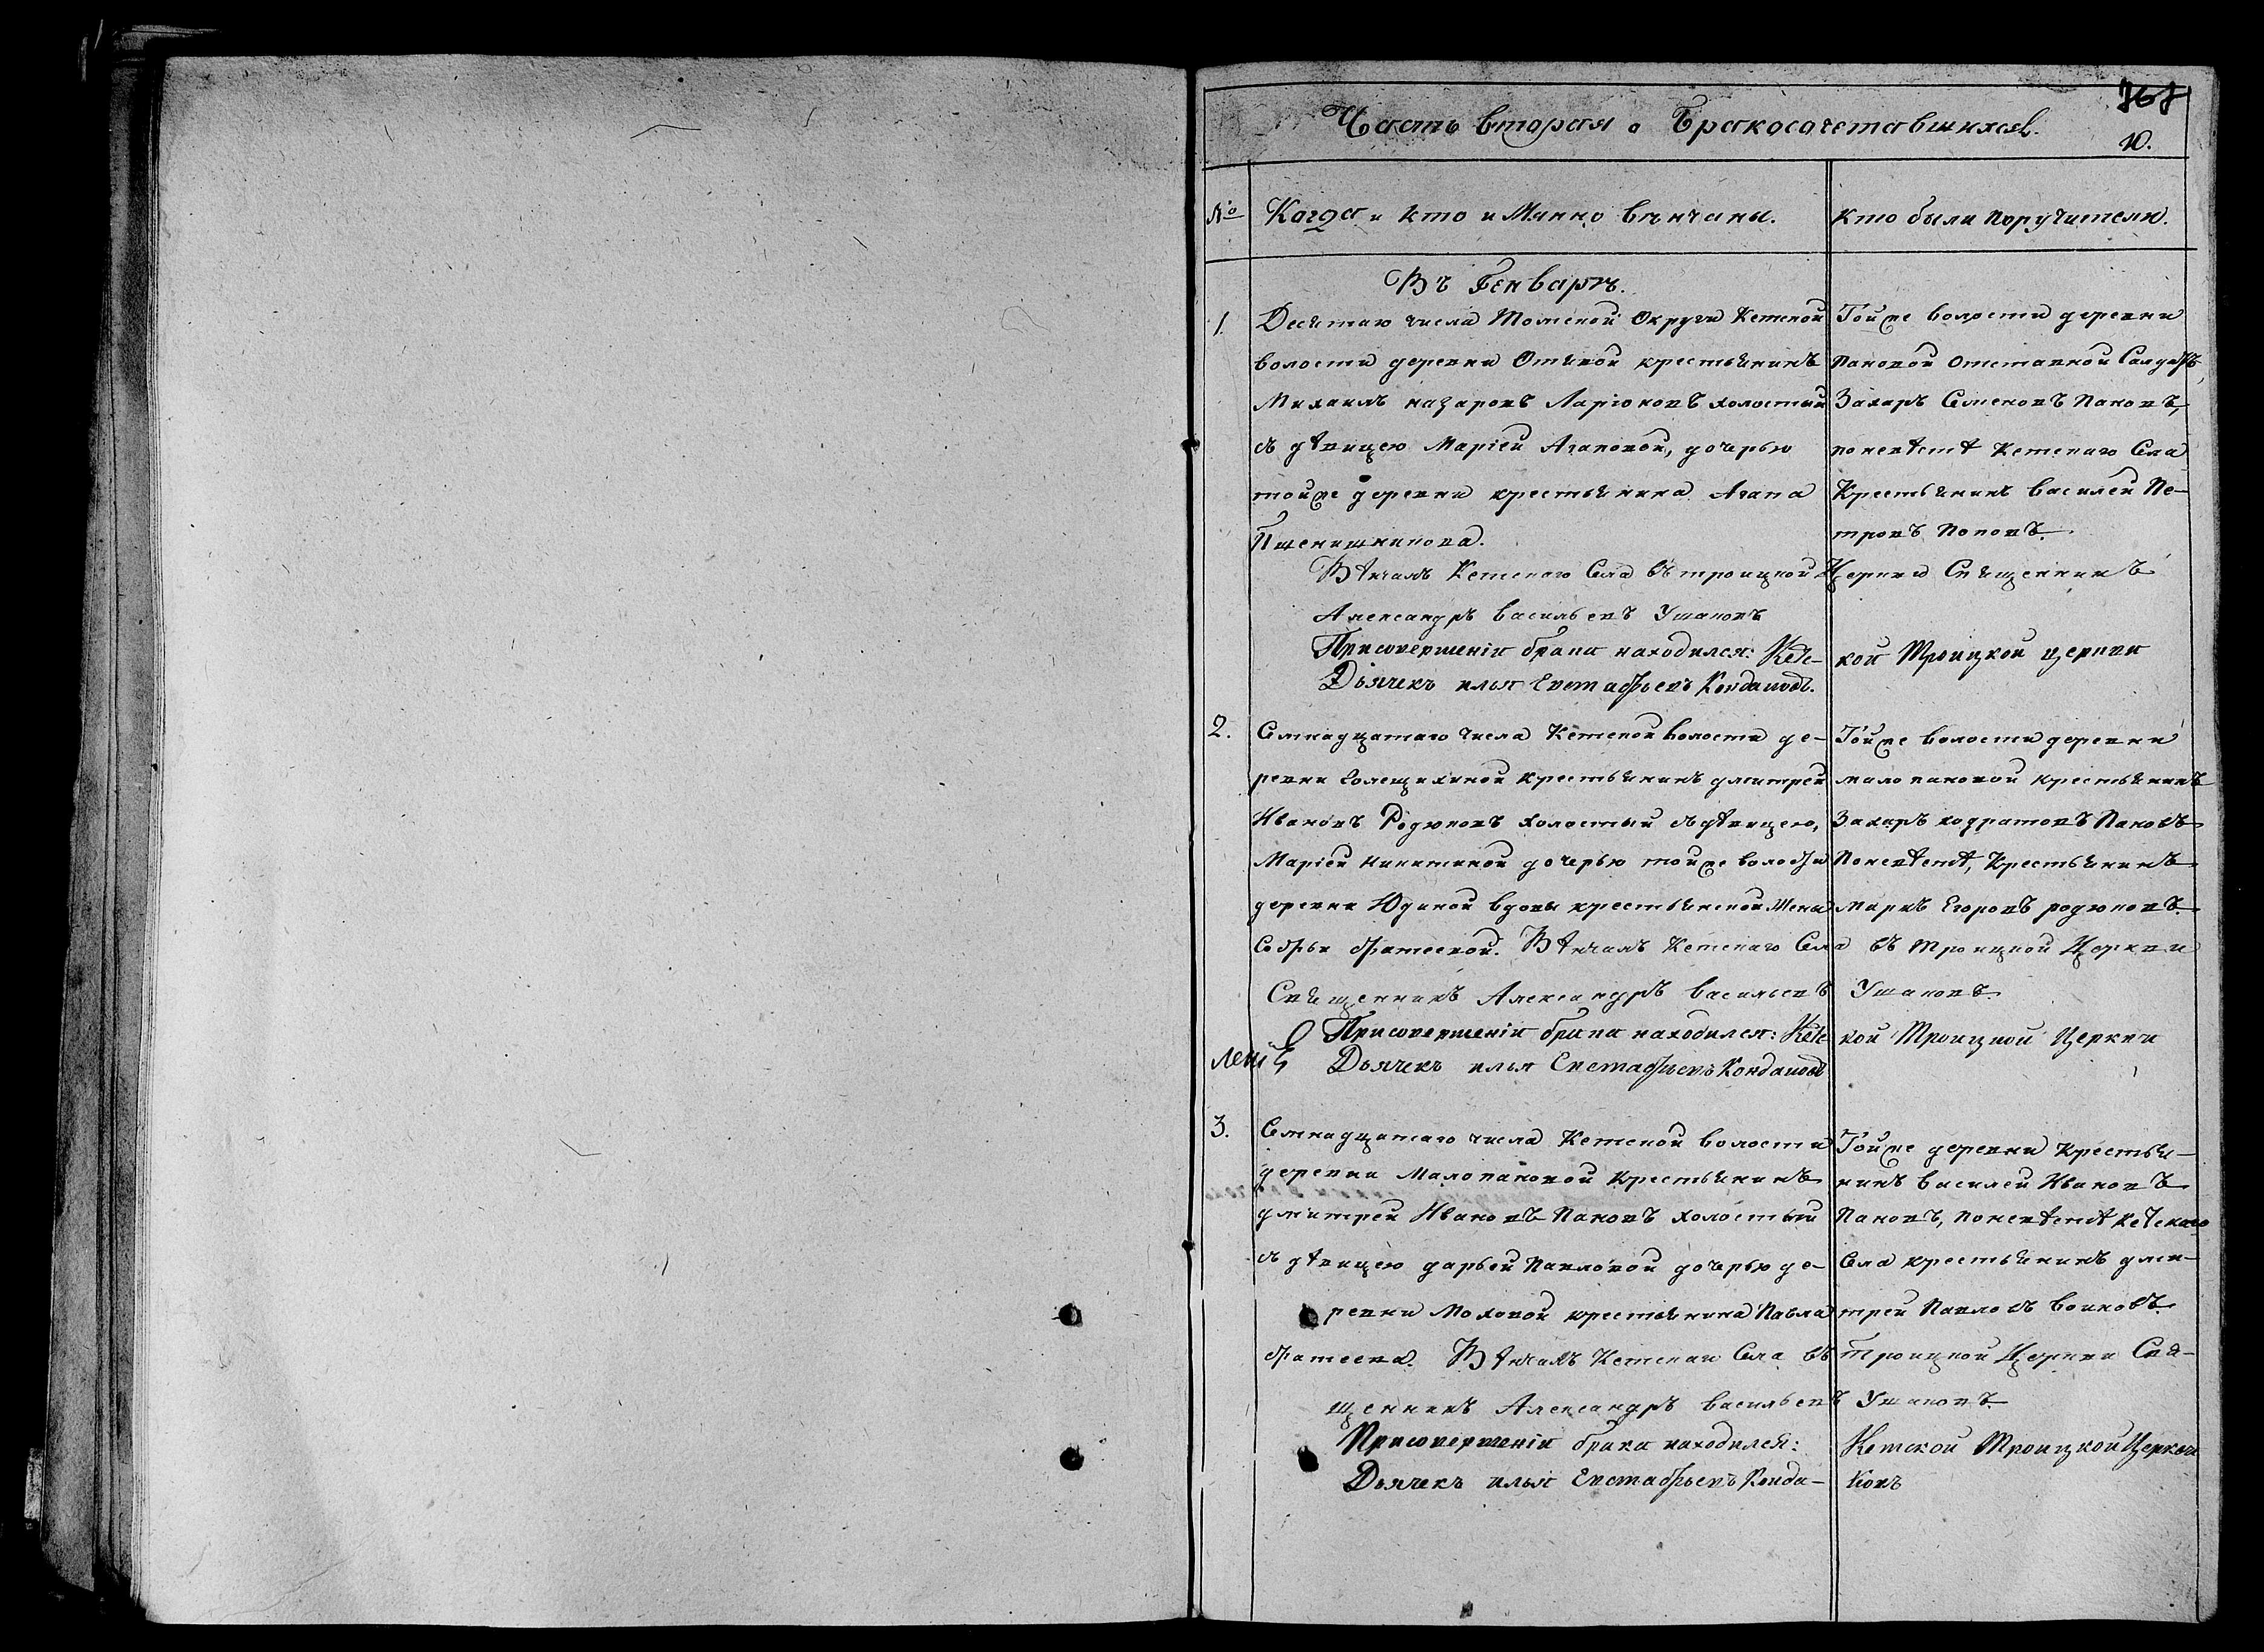 Часть вторая о Бракосочетавшихся.
10.
№ Когда и кто и Мянно вѣнчаны. кто были поручители.
Въ Генварѣ.
1. Десятаго числа Томской Округи Кетской Тойже волости деревни
волости деревни крестьянинъ Пановой отставной Салдатъ,
Михаилъ назаровъ Ларіоновъ холостый Захаръ Семеновъ Пановъ,
съ дѣвицею Маріей Агаповой, дочерью поневѣстѣ Кетскаго Села
тойже деревни крестьянина Агапа Крестьянинъ василей Пе-
Пшенишникова. тровъ Поповъ.
Вѣнчалъ Кетскаго Села въ троицкой Церкви Священникъ
Александръ васильевъ Ушаковъ
При совершеніи брака находился: Кетс- кой Троицкой церкви
Дьячекъ илья Евстафьевъ Кондаковъ.
2. Семнадцатаго числа Кетской волости де- Тойже волости деревни
ревни Голещихиной крестьянинъ дмитрей мало пановой крестьянинъ
Ивановъ Родюковъ холостый съ дѣвицею, Захаръ кодратовъ Пановъ
Маріей Никитиной дочерью тойже волости Поневѣстѣ, Крестьянинъ
деревни Юдиной вдовы крестьянской жены маркъ Егоровъ родюковъ.
Софьи фатеевой. Вѣнчалъ Кетскаго Села въ троицкой Церкви
Священникъ Александръ васильевъ Ушаковъ.
При совершеніи брака находился: Кетс кой Троицкой Церкви
Дьячекъ илья Евстафьевъ Кондаковъ
3. Семнадцатаго числа Кетской волости Тойже деревни Крестья-
деревни Малопановой Крестьянинъ нинъ василей Ивановъ
дмитрей Ивановъ Пановъ холостый Пановъ, поневѣстѣ кетскаго
съ дѣвицею дарьей Павловой дочерью де- Села крестьянинъ дми-
ревни Моховой крестьянина Павла трей Павловъ воиновъ.
фатеева. Вѣнчалъ Кетскаго Села въ троицкой Церкви Свя-
щенникъ Александръ васильевъ Ушаковъ.
При совершеніи брака находился: Кетской Троицкой Церкви
Дьячекъ илья Евстафьевъ Конда- ковъ